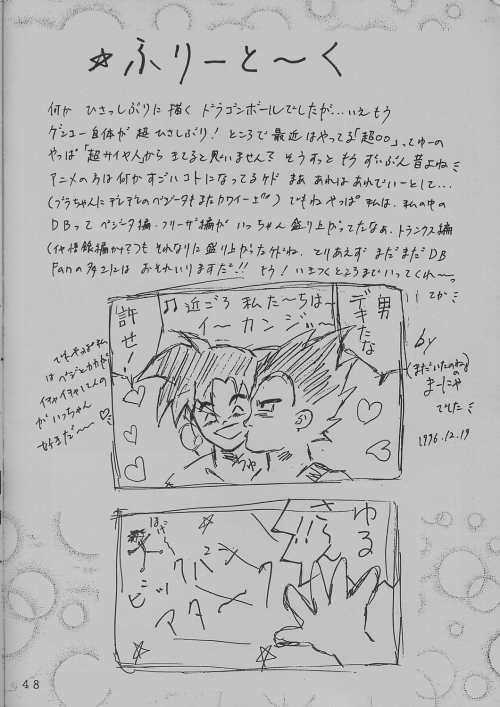 ☆ふりーと〜く
何か ひさっしぶりに描く ドラゴンボールでしたが...いえもう
ゲンコー自体が超ひさしぶり! ところで最近はやってる「超○○」ってゆーの
やっぱ「超サイヤ人」から きてると思いません? そうすっと もう ずいぶん昔よね
アニメの方は何かすごいコトになってるケド まあ あれはあれでいーとして...
(ブラちゃんにデレデレのベジータもまたカワイーが) でもね やっぱ 私は、私の中の
DBって ベジータ編・フリーザ編が いっちゃん盛り上がってたなあ、トランクス編
それなりに盛り上がったケドね、とりあえず まだまだDB
Fanの多さには おそれいりますだ!! もう! いきつくところまでいってくれ〜っ
てか
by
(まだいたのねっ)
まーにゃ
でした
1996.12.19
でもやっぱ私
はベジとカカが
イチャイチャしてんの
がいっちゃん
好きだ〜〜♡
♫近ごろ 私た〜ちは〜
イ〜カンジ〜
男
デキたな
許せ!
ちゅ
ゆる
さん!!
ビッ
バン
アタック
48